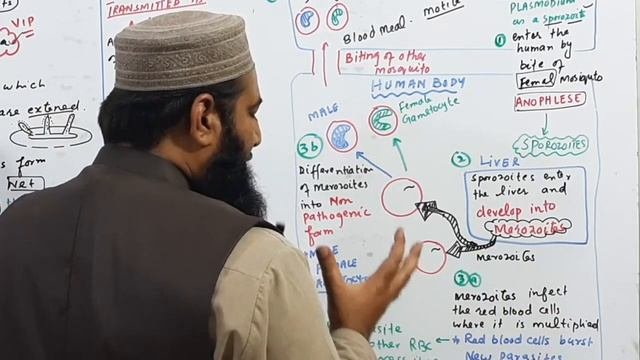 TRANSMITTED AS
VIP
which
are extened
s form
Net
Blood meal. motile
Biting of other
mosquito
HUMAN BODY
MALE
Female
Gametocyte
3b
Differentiation
of merozoites
into Non
Pathogenic
form
MALE
PLASMODIUM
as a sporozoite
1
enter the
human by
bite of
Femal Mosquito
ANOPHLESE
SPOROZOITES
2
LIVER
sporozoites enter
the liver and
develop into
Merozoites
Merozoites
3a
Merozoites infect
the red blood cells
where it is multiplied
Red blood cells burst
New Parasites
other RBC